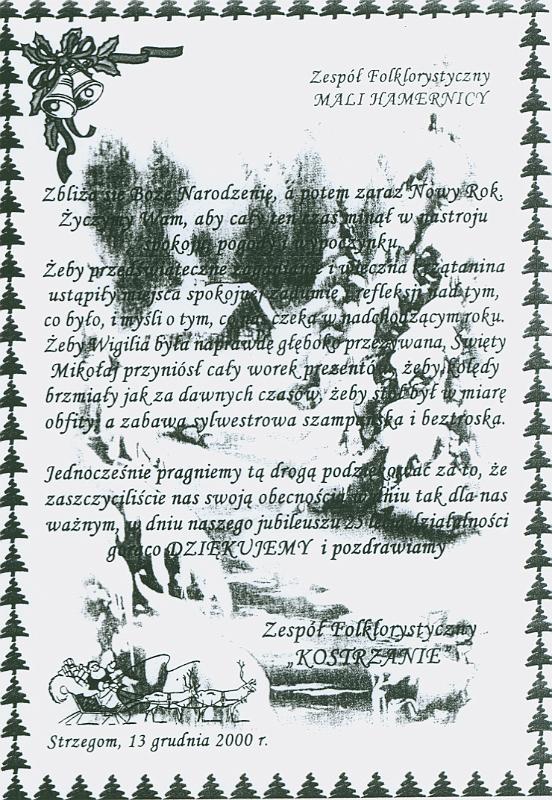 Zespół Folklorystyczny
MALI HAMERNICY
Zbliża się Boże Narodzenie, a potem zaraz Nowy Rok.
Życzymy Wam, aby cały ten czas minął w nastroju
spokoju, pogody i wypoczynku.
Żeby przedświąteczne zaganianie i wieczna krzątanina
ustąpiły miejsca spokojnej zadumie, refleksji nad tym,
co było, i myśli o tym, co nas czeka w nadchodzącym roku.
Żeby Wigilia była naprawdę głęboko przeżywana, Święty
Mikołaj przyniósł cały worek prezentów, żeby kolędy
brzmiały jak za dawnych czasów, żeby stół był w miarę
obfity, a zabawa sylwestrowa szampańska i beztroska.
Jednocześnie pragniemy tą drogą podziękować za to, że
zaszczyciliście nas swoją obecnością w dniu tak dla nas
ważnym, w dniu naszego jubileuszu 25 lecia działalności
gorąco DZIĘKUJEMY i pozdrawiamy
Zespół Folklorystyczny
„KOSTRZANIE”
Strzegom, 13 grudnia 2000 r.